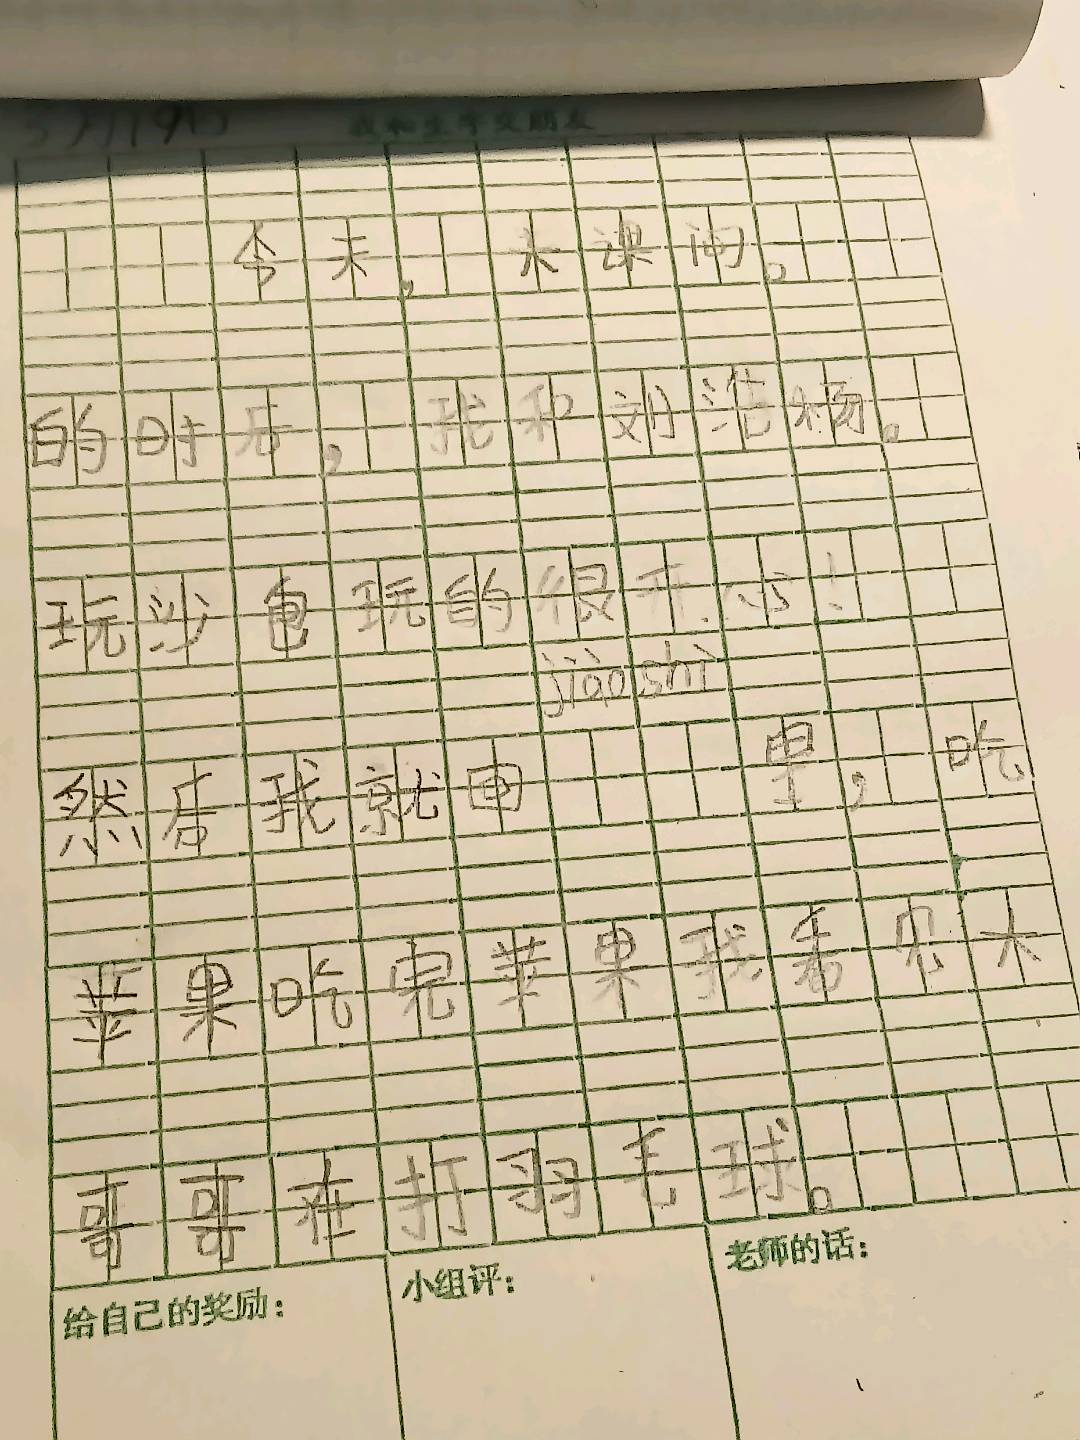 5月19日 我和生字交朋友
今天，大课间。
的时后，我和刘浩杨。
玩沙包玩的很开心！
jiào shì
然后我就回 里，吃
苹果吃完苹果我看见大
哥哥在打羽毛球。
给自己的奖励： 小组评： 老师的话：